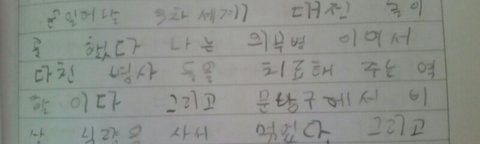 3차 세계 대전 놀이
를 했다 나는 의무병 이여서
다친 병사 들을 치료해 주는 역
할 이다 그리고 문방구에서 비
상 식량을 사서 먹었다 그리고